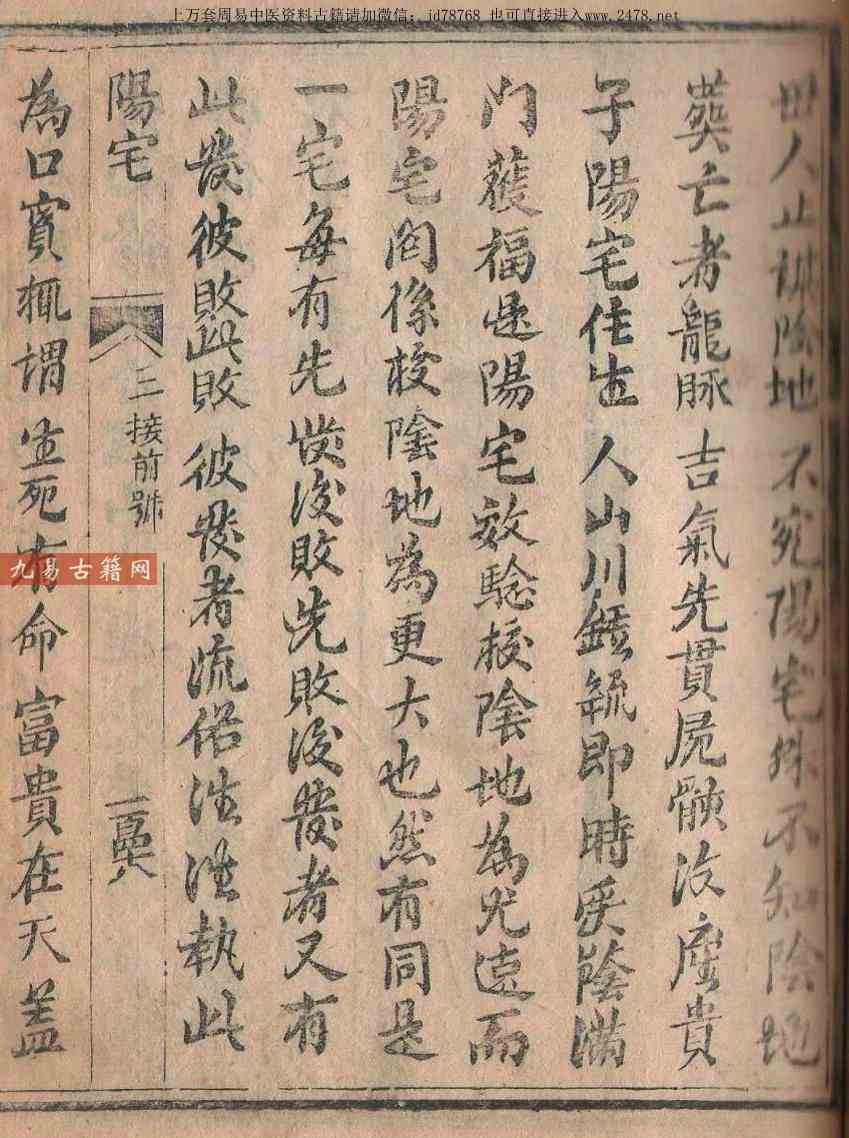 上万套周易中医资料古籍请加微信：jd78768 也可直接进入www.2478.net
世人止講陰地不究陽宅殊不知陰地
葬亡者龍脉吉氣先貫屍骸次廕貴
子陽宅住生人山川鍾毓即時受蔭滿
門獲福是陽宅效騐校陰地為尤速而
陽宅闗係校陰地為更大也然有同是
一宅每有先發後敗先敗後發者又有
此發彼敗此敗彼發者流俗往往執此
陽宅
三接前號
為口實輒謂生死有命富貴在天盖
九易古籍网